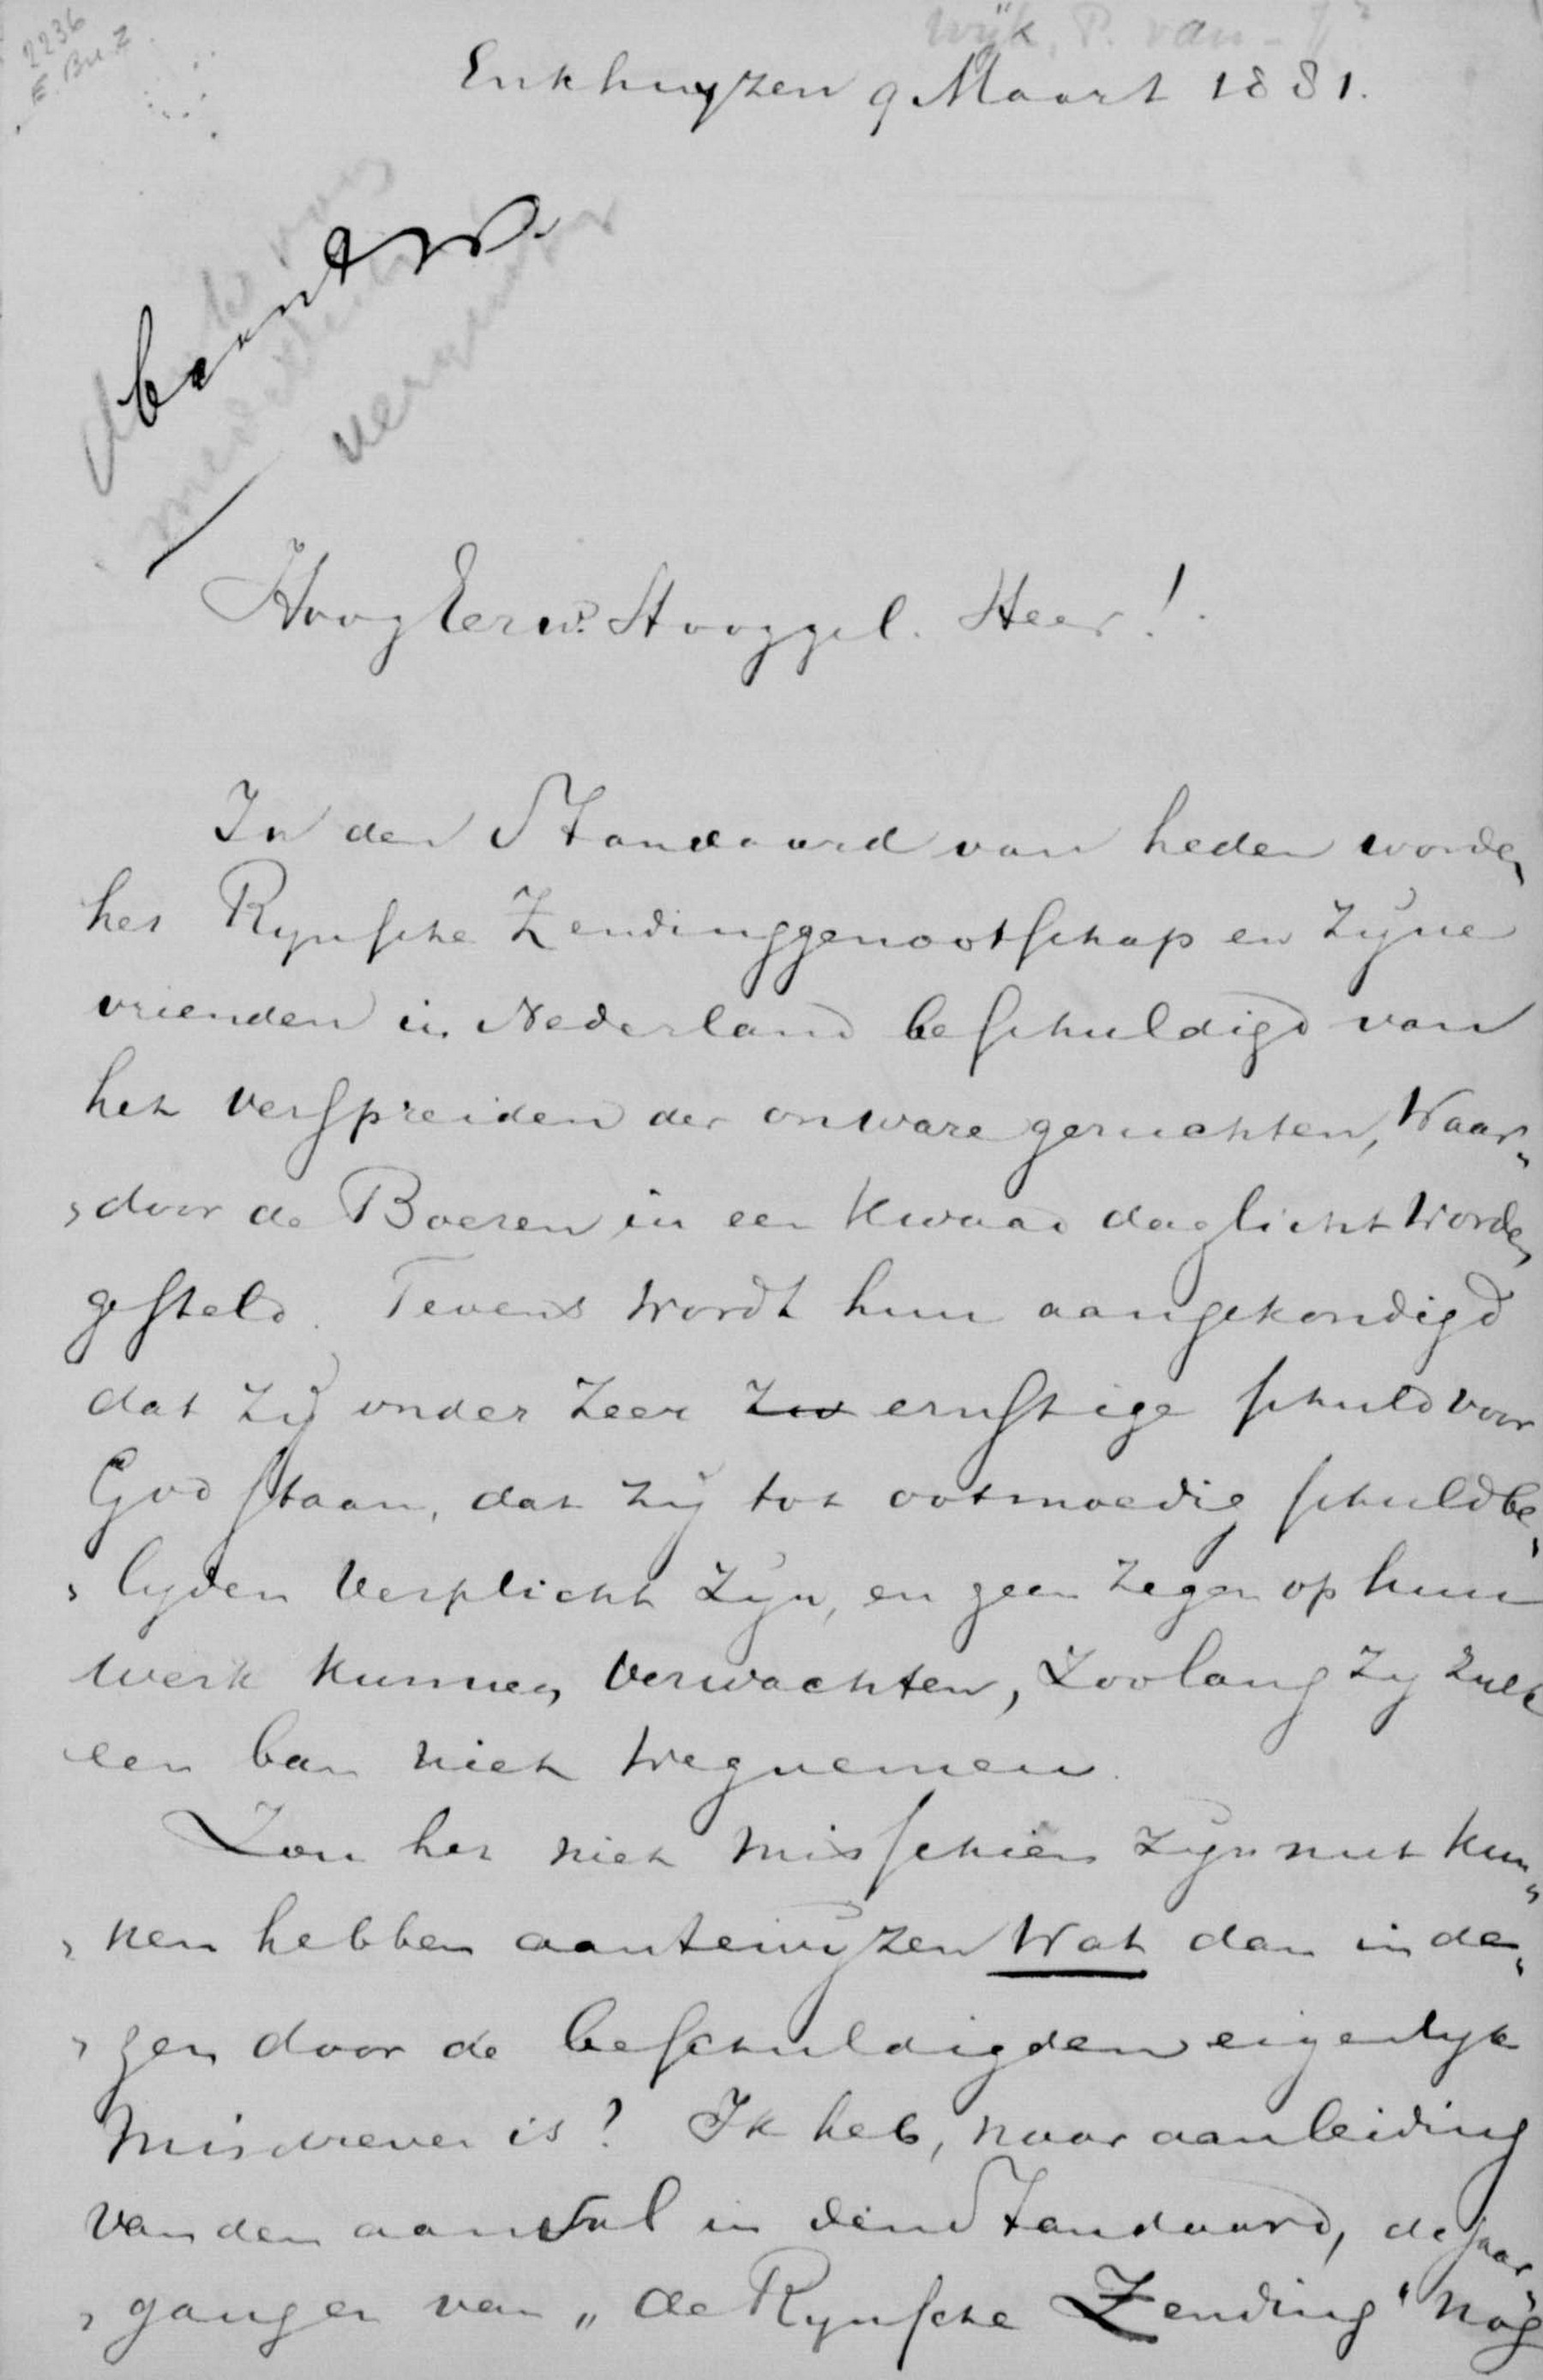 2236
Wijk, P. van - Jr
Enkhuyzen 9 Maart 1881.
HoogEerw. Hooggel. Heer!
In den Standaard van heden worden
het Rynsche Zendinggenootschap en zyne
vrienden in Nederland beschuldigd van
het verspreiden der onware geruchten, Waar„
„door de Boeren in een kwaad daglicht Worden
gesteld. Tevens Wordt hun aangekondigd
dat zij onder zeer zw ernstige schuld voor
God staan, dat zij tot ootmoedig schuldbe„
„lyden Verplicht zyn, en geen zegen op hun
werk kunnen Verwachten, Zoolang zy zulk
een ban niet Wegnemen.
Zou het niet misschien zyn nut kun„
„nen hebben aantewyzen Wat dan in de„
„zen door de beschuldigden eigenlyk
Misdreven is? Ik heb, naar aanleiding
Van den aanval in den Standaard, de jaar„
„gangen van „de Rynsche Zending" nog